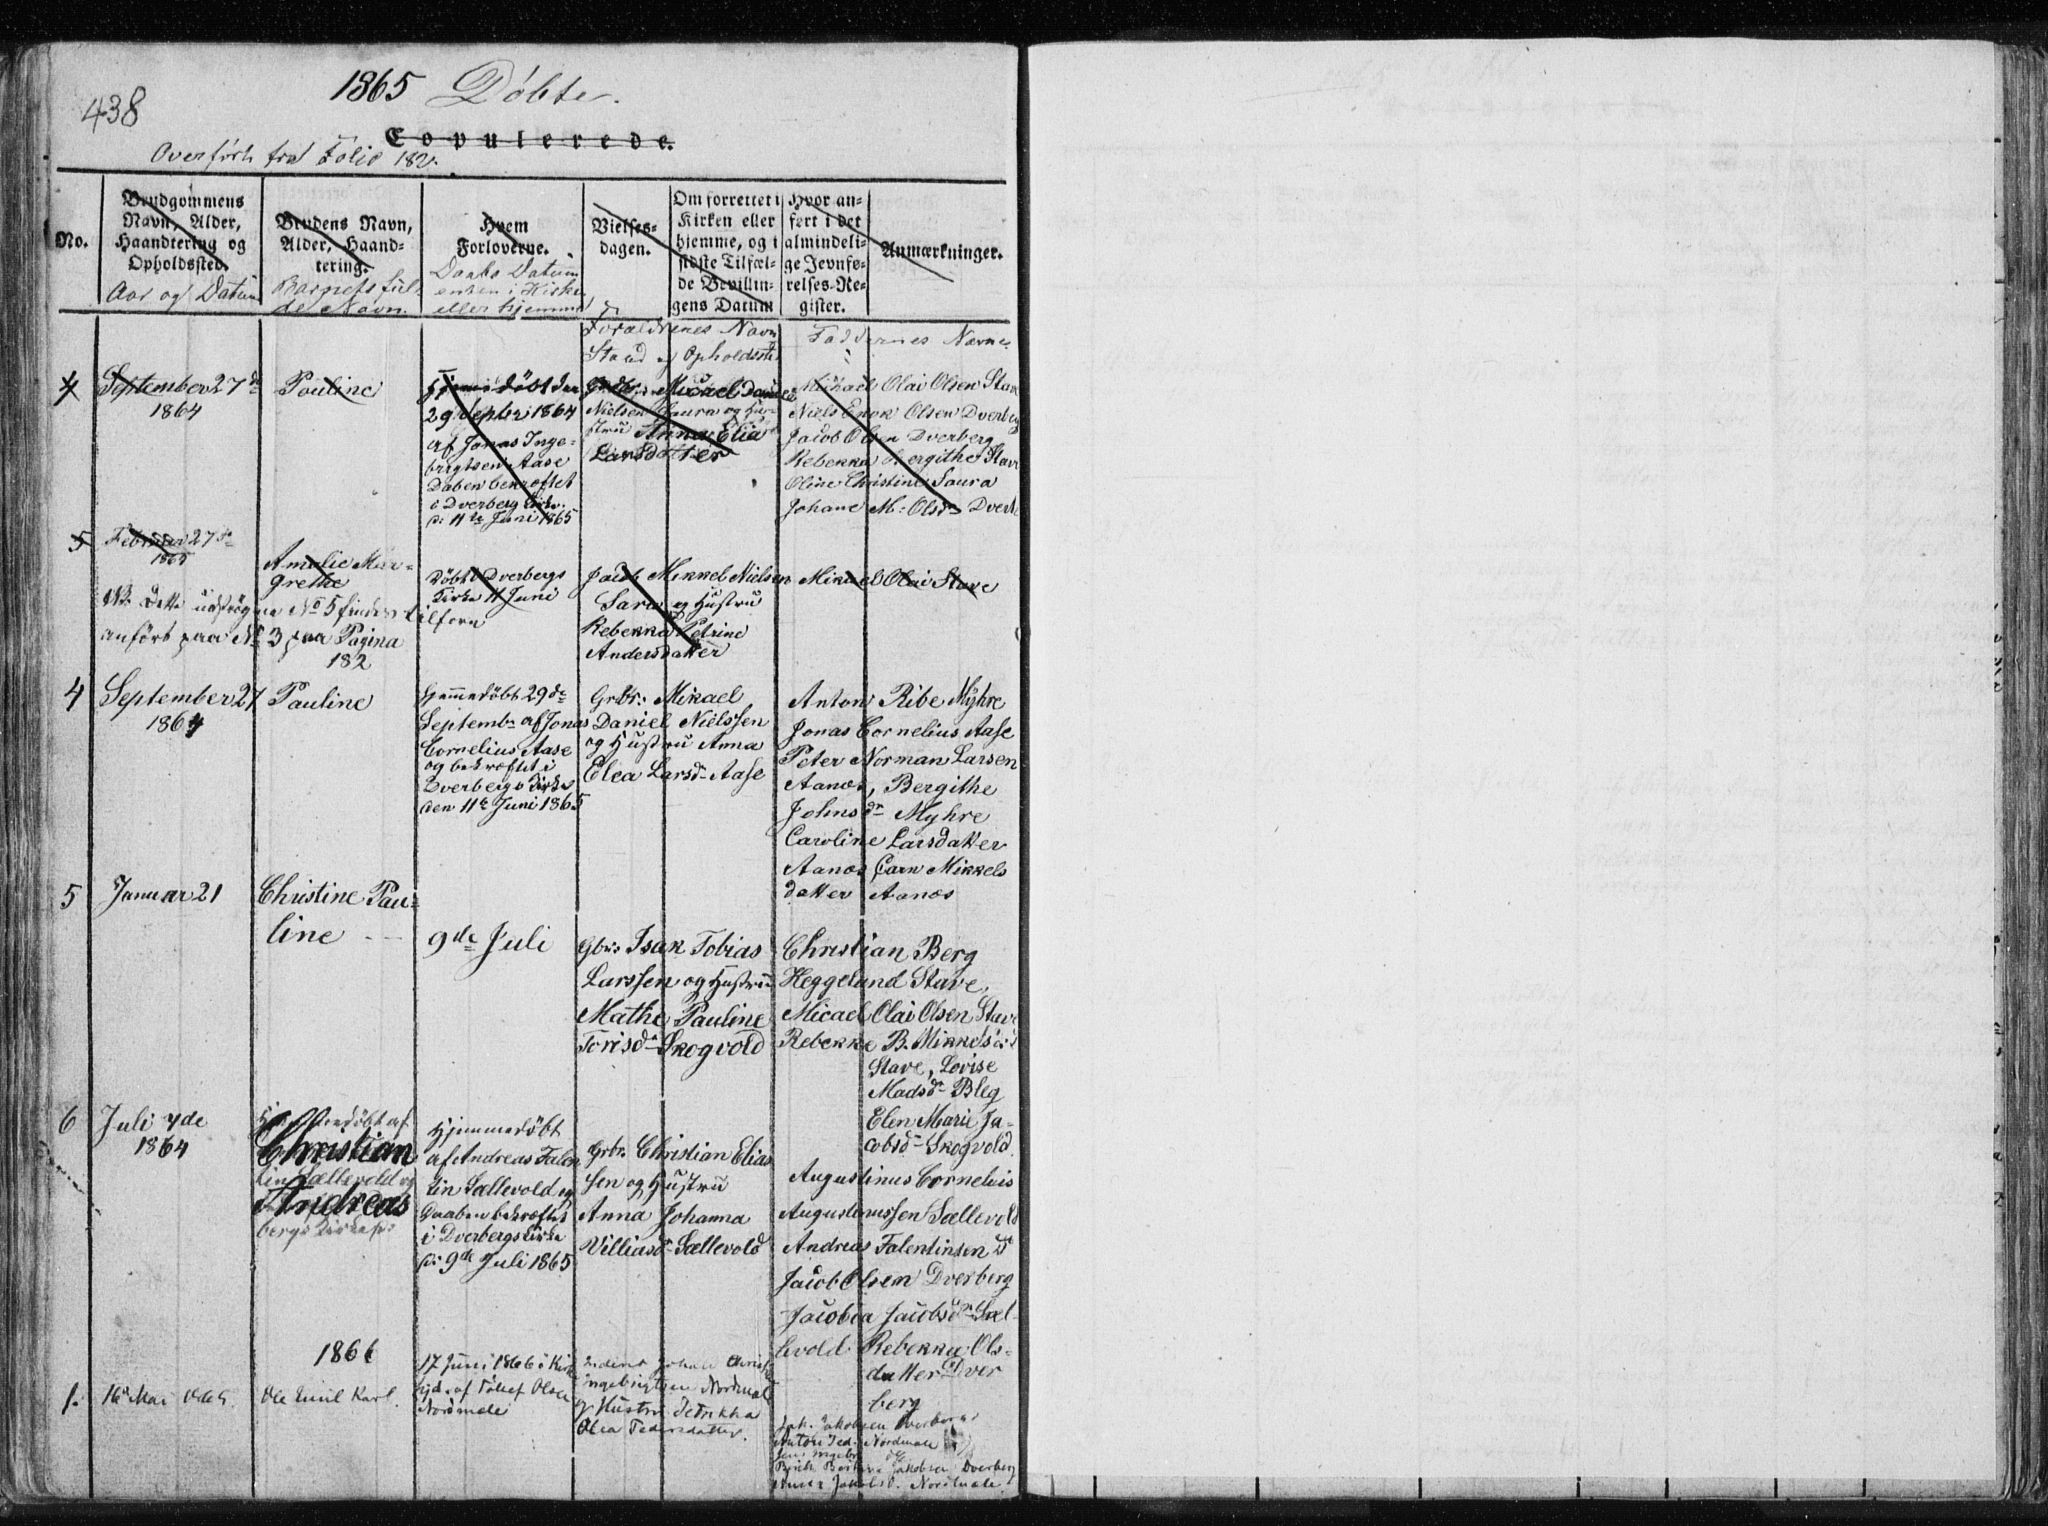 438
1865 Döbte.
Copulerede.
Overført fra Folio 182.
No.
Brudgommens
Navn, Alder,
Haandtering og
Opholdssted.
Aar og Datum
Brudens Navn,
Alder, Haand-
tering.
Barnets ful-
de Navn.
Hvem
Forloverne.
Daabs Datum
enten i Kirke
eller hjemme
Vielses-
dagen.
Om forrettet i
Kirken eller
hjemme, og i
sidste Tilfæl-
de Bevillin-
gens Datum
Hvor an-
ført i det
almindeli-
ge Jevnfø-
relses-Re-
gister.
Anmærkninger.
Forældrenes Navn
Stand og Opholdsste
Faddernes Navne
4
September 27de
1864
Pauline
Hjemmedöbt den
29 Septbr 1864
af Jonas Inge-
brigtsen Aase
Daben bekræftet
i Dverberg Kirke
d: 11te Juni 1865
Gbr: Micael Daniel
Nielsen Saura og Hu-
stru Anna Elia
Larsdatter
Michael Olai Olsen Stave
Niels Enok Olsen Dverberg
Jacob Olsen Dverberg
Rebekka Bergithe Stave
Oline Christine Saura
Johane M: Olsdr Dverbe
5
Februar 27de
1865
Amalie Mar-
grethe
Döbt Dverbergs
Kirke 11 Juni
Jacob Mikkel Nielsen
Sara og Hustru
Rebekka Petrine
Andersdatter
Mikael Olai Stave
NB Dette udströgne No 5 findes tilforn
anført paa No 3 paa Pagina
182
4
September 27
1864
Pauline
Hjemmedöbt 29de
Septembr af Jonas
Cornelius Aase
og bekræftet i
Dverbergs Kirke
den 11te Juni 1865
Grbr: Mikael
Daniel Nielssen
og Hustru Anna
Elea Larsdr Aase
Anton Ribe Myhre
Jonas Cornelius Aase
Peter Norman Larsen
Aanes, Bergithe
Johnsdr Myhre
Caroline Larsdatter
Aanæs Carn Mikkels
datter Aanæs
5
Januar 21
Christine Pau-
line
9de Juli
Gbr: Isak Tobias
Larssen og Hustru
Mathe Pauline
Torisdr Skogvold
Christian Berg
Heggelund Stave,
Micael Olai Olsen Stave
Rebekke B. Mikkelsdr
Stave, Lovise
Madsdr Bleg
Elen Marie Ja-
cobsdr Skogvold
6
Juli 7de
1864
Christian
Andreas
Hjemmedöbt
af Andreas Falen
tin Sællevold og
Daaben bekræftet
i Dverbergs Kirke
d: 9de Juli 1865
Grbr: Christian Elias
sen og Hustru
Anna Johanna
Villiasdr Sællevold
Augustinus Cornelius
Augustinussen Sællevold
Andreas Falentinsen
Jacob Olsen Dverberg
Jacobia Jacobsdr Sæl-
levold Rebekka Ols-
datter Dver
berg
1866
1.
16de Mai 1865
Ole Emil Karl.
17 Juni 1866 i Kirke
af Tollef Olsen
Nordmele
Johan Christ
Ingebrigtsen Nordmele
og Hustru Petrikka
Olea Pedersdatter.
Jak. Jakobsen Dverberg
Anton Ped. Nordmele
Jakobsen Dverberg
Jakobsd. Nordmele.